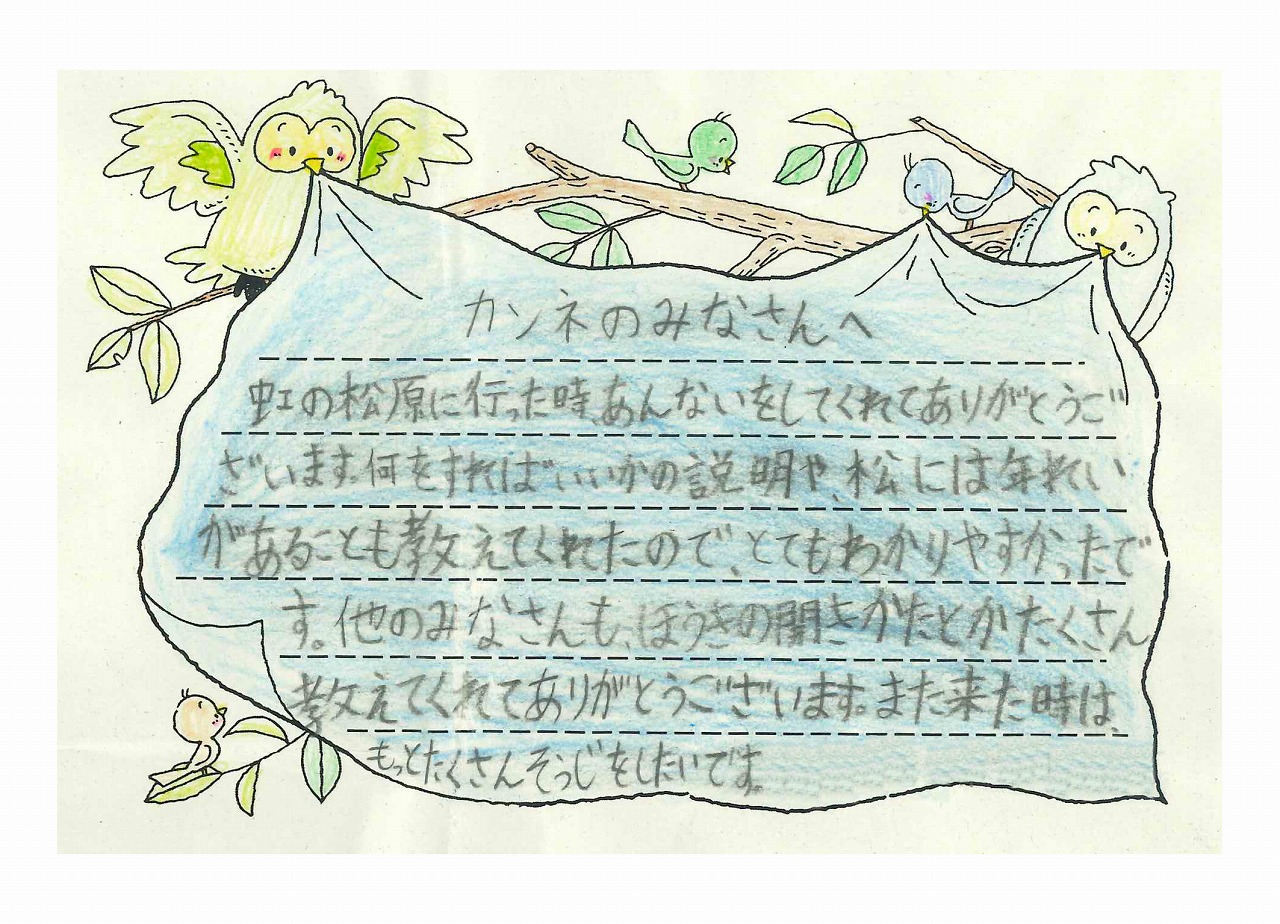 カンネのみなさんへ
虹の松原に行った時、あんないをしてくれてありがとうご
ざいます。何をすればいいかの説明や、松には年れい
があることも教えてくれたので、とてもわかりやすかったで
す。他のみなさんも、ほうきの開きかたとかたくさん
教えてくれてありがとうございます。また来た時は、
もっとたくさんそうじをしたいです。